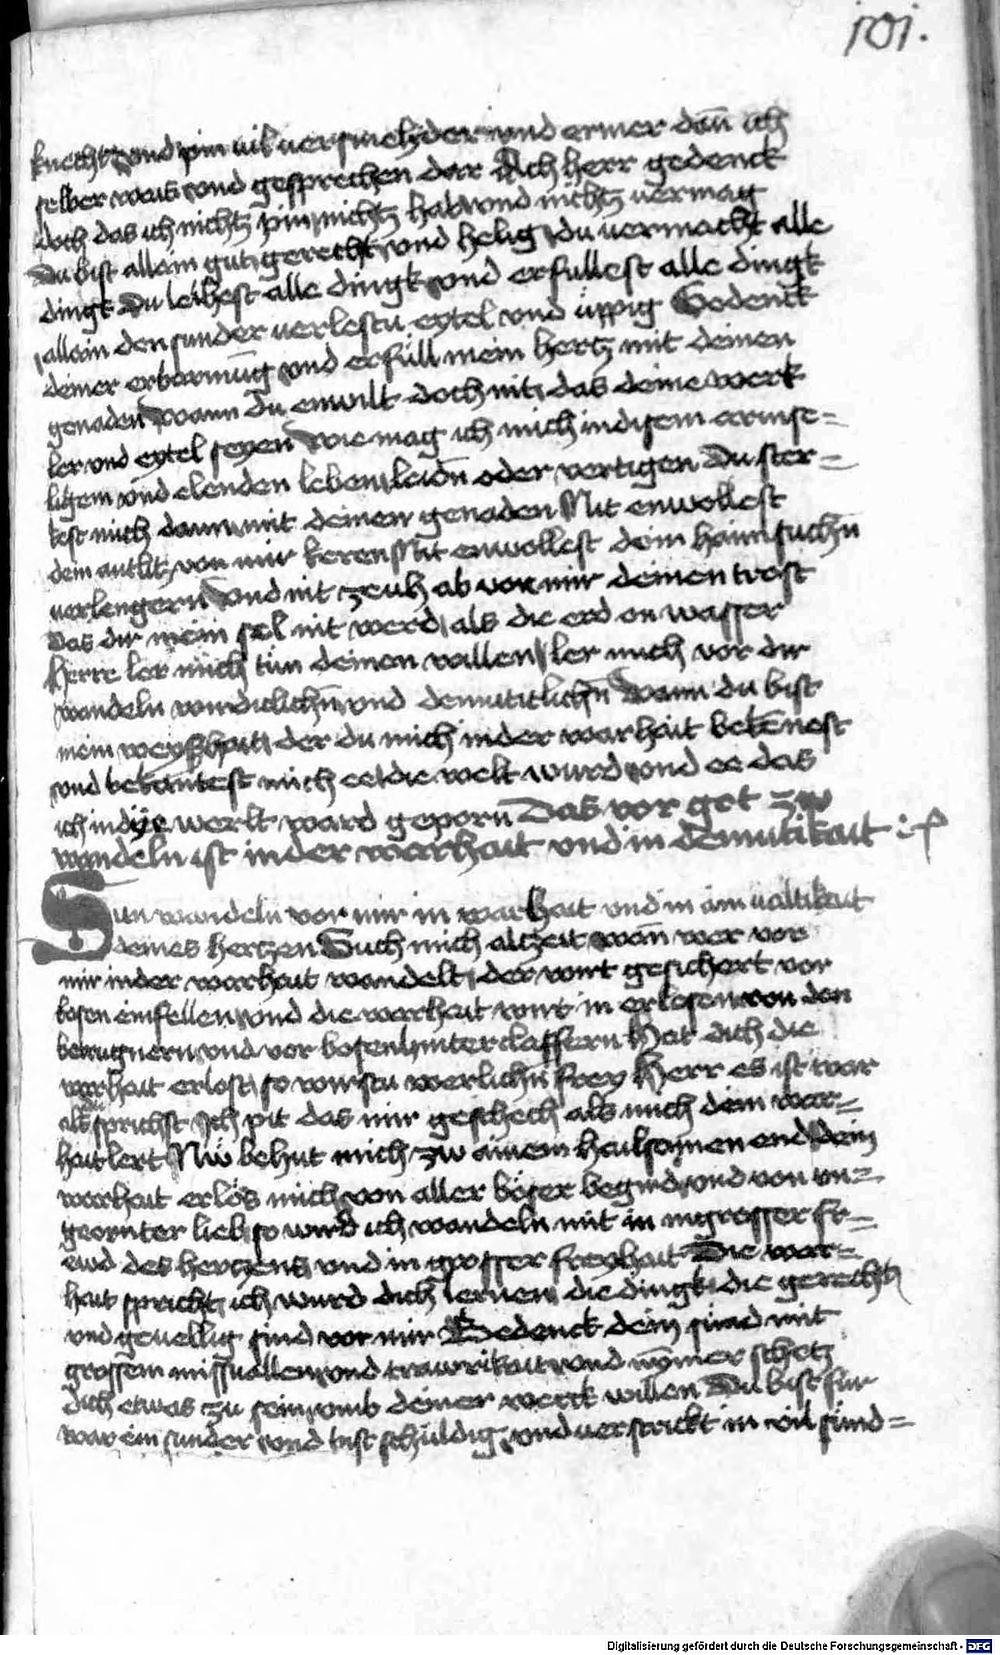 101.
knecht vnd pin vil versmehder vnd ermer dan̄ ich
selber wais vnd gesprechen dar Ach herr gedenck
doch das ich nichtz pin nichtz hab vnd nichtz vermag
Du bist allain gut gerecht vnd helig du vermacht alle
dingk Du leihest alle dingk vnd erfullest alle dingk
allain den sunder verlestu eytel vnd üppig Gedenck
deiner erbarmūg vnd erfüll mein hertz mit deinen
genaden wann Du enwilt doch nit das deine werk
ler vnd eytel seyen Wie mag ich mich in disem armse=
ligem vnd elenden leben leidn̄ oder vertigen Du ster=
kest mich dann mit deinen genaden Nit enwollest
dein antlitz von mir keren Nit enwollest dein haimsuchn̄
verlengern Vnd nit zeuh ab von mir deinen trost
Das dir mein sel nit werd als die erd on wasser
Herre ler mich tun deinen wallen ler mich vor dir
wandeln wirdiclichn̄ vnd demutitlichn̄ Wann du bist
mein weyßhait der du mich in der warhait bekēnest
vnd bekantest mich ee die welt wurd vnd ee das
ich in dye werlt ward geporn Das vor got zw
wandeln ist in der warhait vnd in demutikait
Sun wandeln vor mir in warhait vnd in ainualtikait
deines hertzen Such mich altzeit wan̄ wer vor
mir in der warhait wandelt der wirt gesichert vor
bosen einfellen vnd die warhait wirt in erlosen von den
betrugnern vnd vor bosen hinterclaffern Hat dich die
warhait erlost so wirstu werlichn̄ frey Herr es ist war
als du sprichst Ich pit das mir geschech als mich dein war=
hait lert Nw behut mich zw ainem hailsamen end Dein
warhait erlös mich von aller böser begird vnd von vn=
geornter lieb so wird ich wandeln mit in in grosser fr=
ewd des hertzens vnd in grosser freyhait Die war=
hait spricht ich wurd dich lernen die dingk die gerecht
vnd geuellig sind vor mir Bedenck dein sund mit
grossem missuallen vnd trawrikait vnd nymer schetz
dich etwas zu sein vmb deiner werck willen Du bist fur
war ein sunder vnd bist schuldig vnd verstrickt in vil sünd=
Digitalisierung gefördert durch die Deutsche Forschungsgemeinschaft - DFG